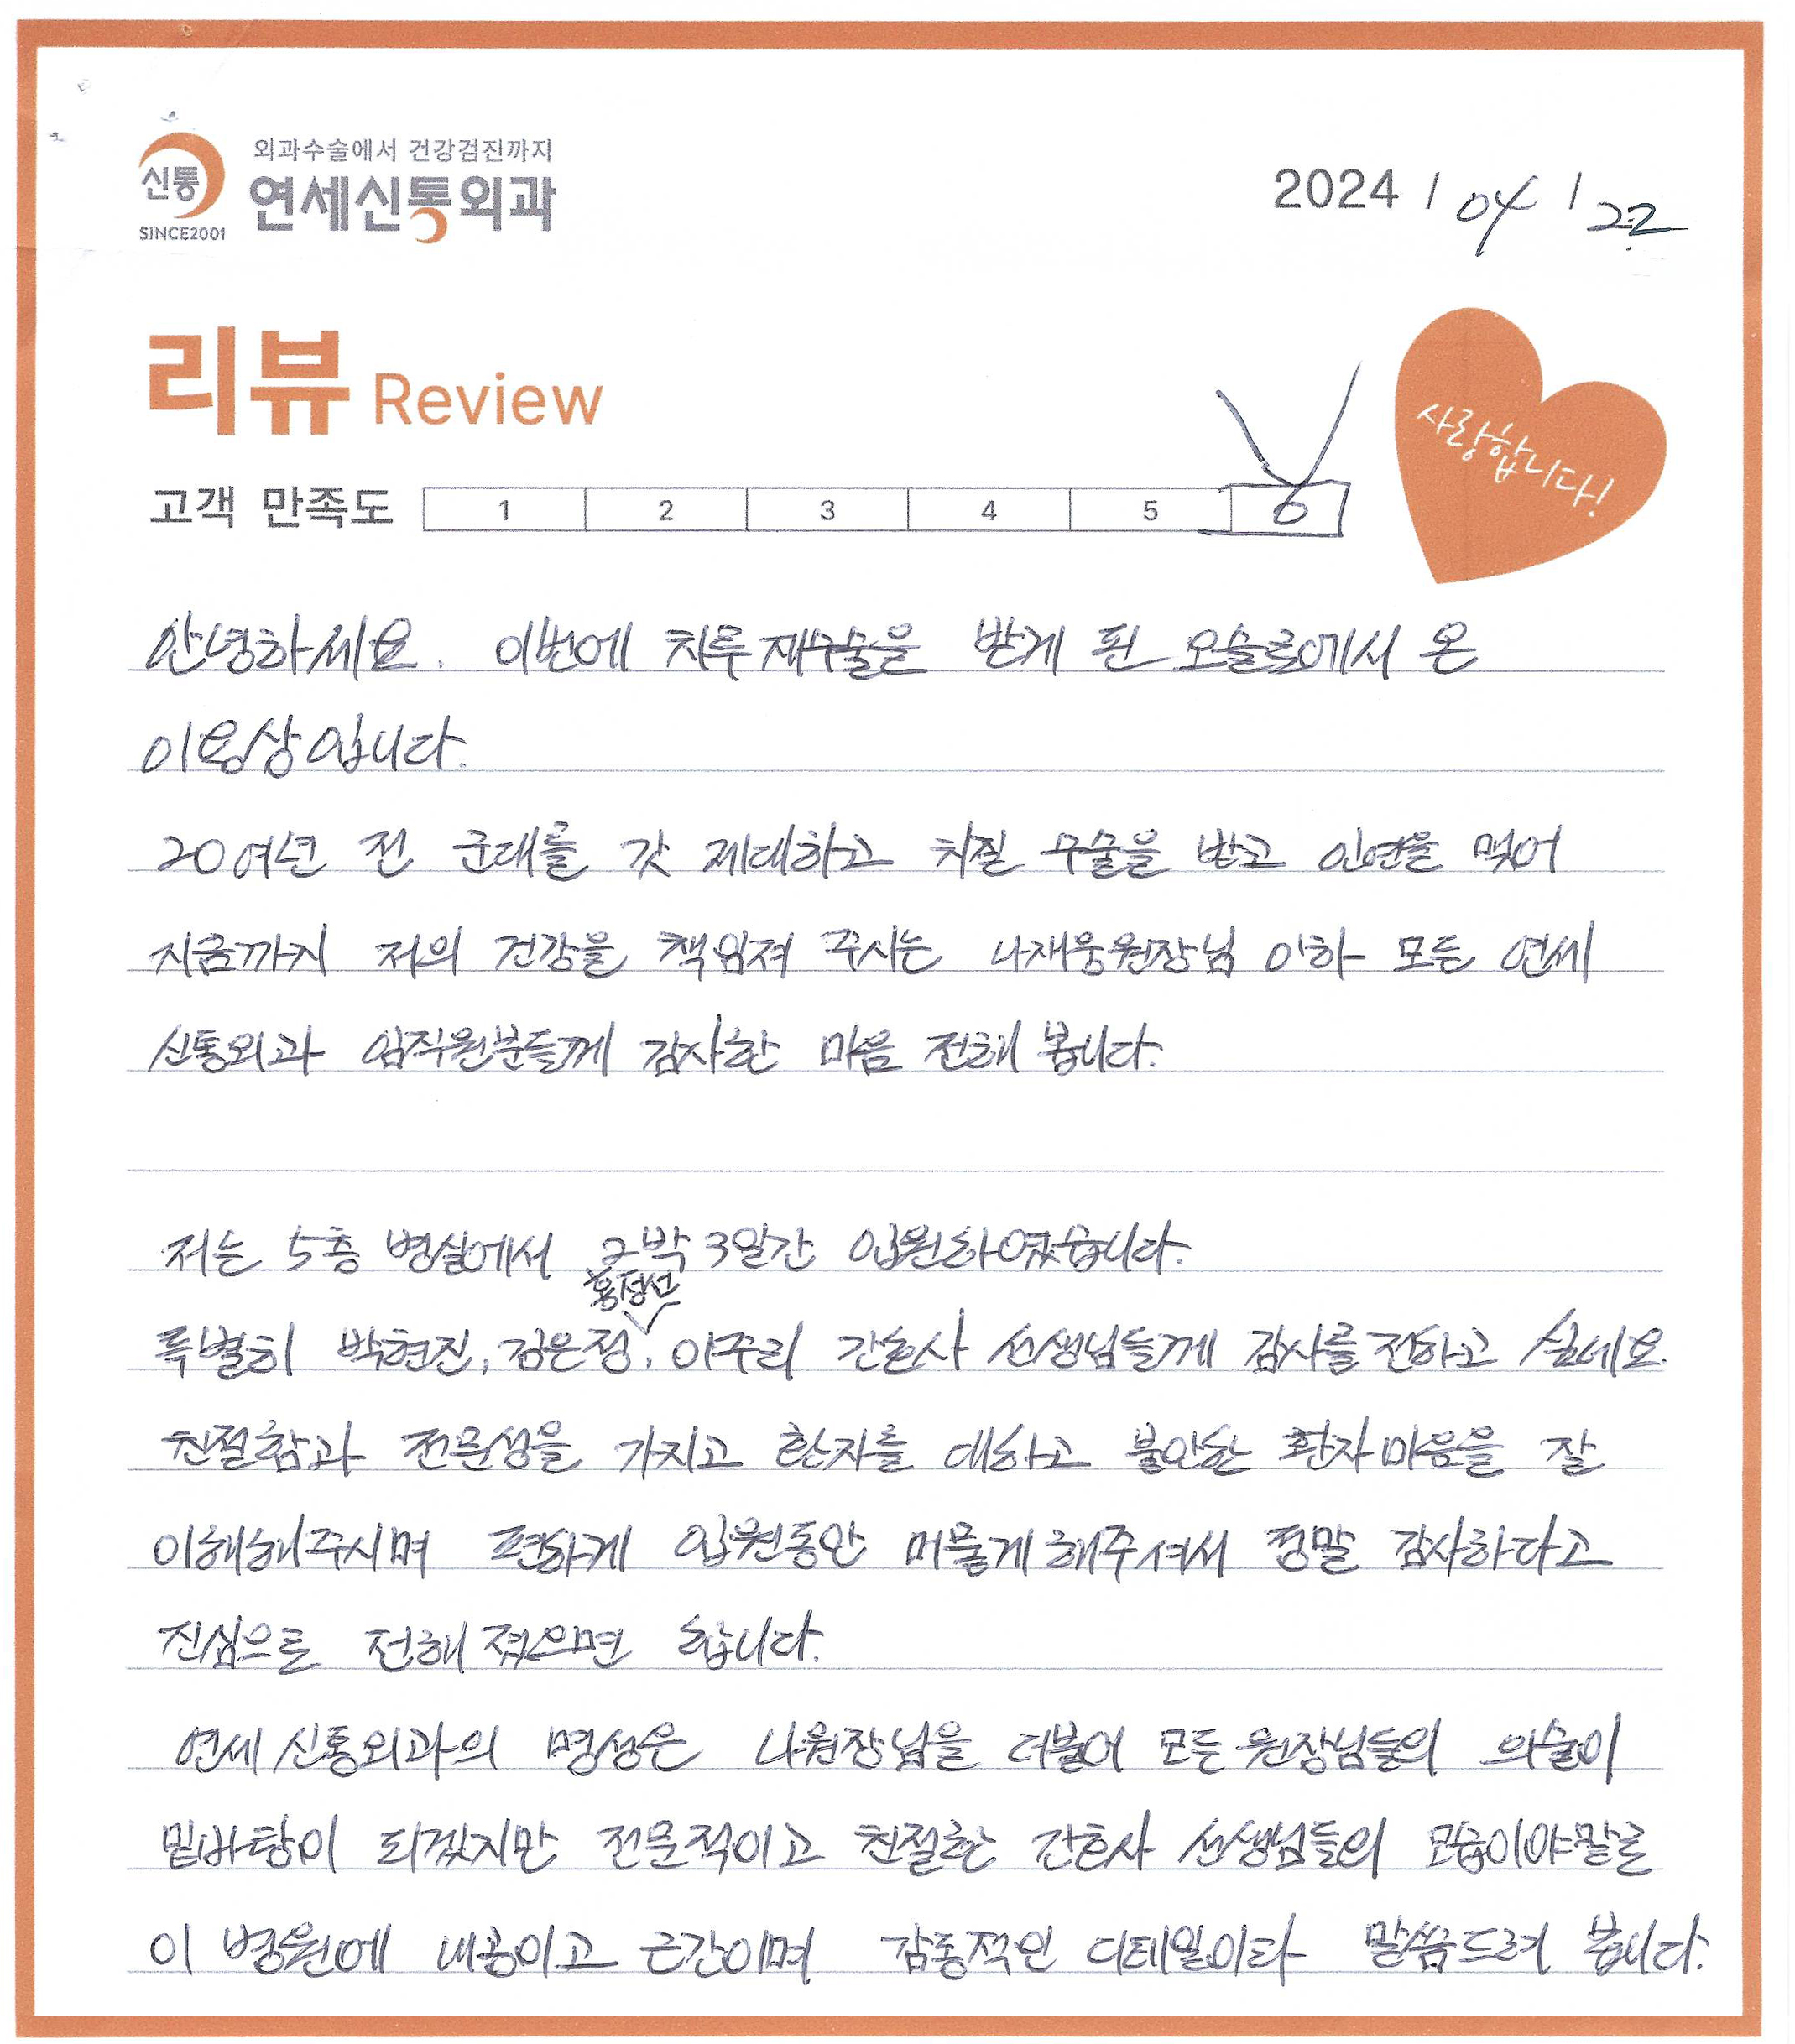 신통
SINCE2001
외과수술에서 건강검진까지
연세신통외과
2024 / 04 / 22
리뷰 Review
사랑합니다!
고객 만족도 1 2 3 4 5 6
안녕하세요. 이번에 치루 재수술을 받게 된 오슬로에서 온
이용상입니다.
20여년 전 군대를 갓 제대하고 치질 수술을 받고 인연을 맺어
지금까지 저의 건강을 책임져 주시는 나재웅원장님 이하 모든 연세
신통외과 임직원분들께 감사한 마음 전해 봅니다.
저는 5층 병실에서 2박 3일간 입원하였습니다.
홍정선
특별히 박현진, 김은정, 이주리 간호사 선생님들께 감사를 전하고 싶네요.
친절함과 전문성을 가지고 환자를 대하고 불안한 환자 마음을 잘
이해해주시며 편하게 입원동안 머물게 해주셔서 정말 감사하다고
진심으로 전해 졌으면 합니다.
연세신통외과의 명성은 나원장님을 더불어 모든 원장님들의 의술이
밑바탕이 되겠지만 전문적이고 친절한 간호사 선생님들의 모습이야말로
이 병원에 내공이고 근간이며 감동적인 디테일이라 말씀드려 봅니다.